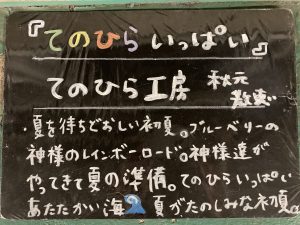 『てのひらいっぱい』
てのひら工房 秋元
・夏を待ちどおしい初夏。ブルーベリーの
神様のレインボーロード。神様達が
やってきて夏の準備。てのひらいっぱい
あたたかい海 夏がたのしみな初夏。